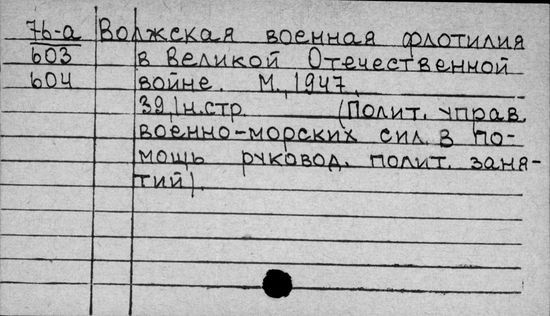 7б-а Волжская военная флотилия
603 в Великой Отечественной
604 войне. М., 1947.
39, 1н.стр. (Полит. управ.
военно-морских сил. В по-
мощь руковод. полит. заня-
тий).